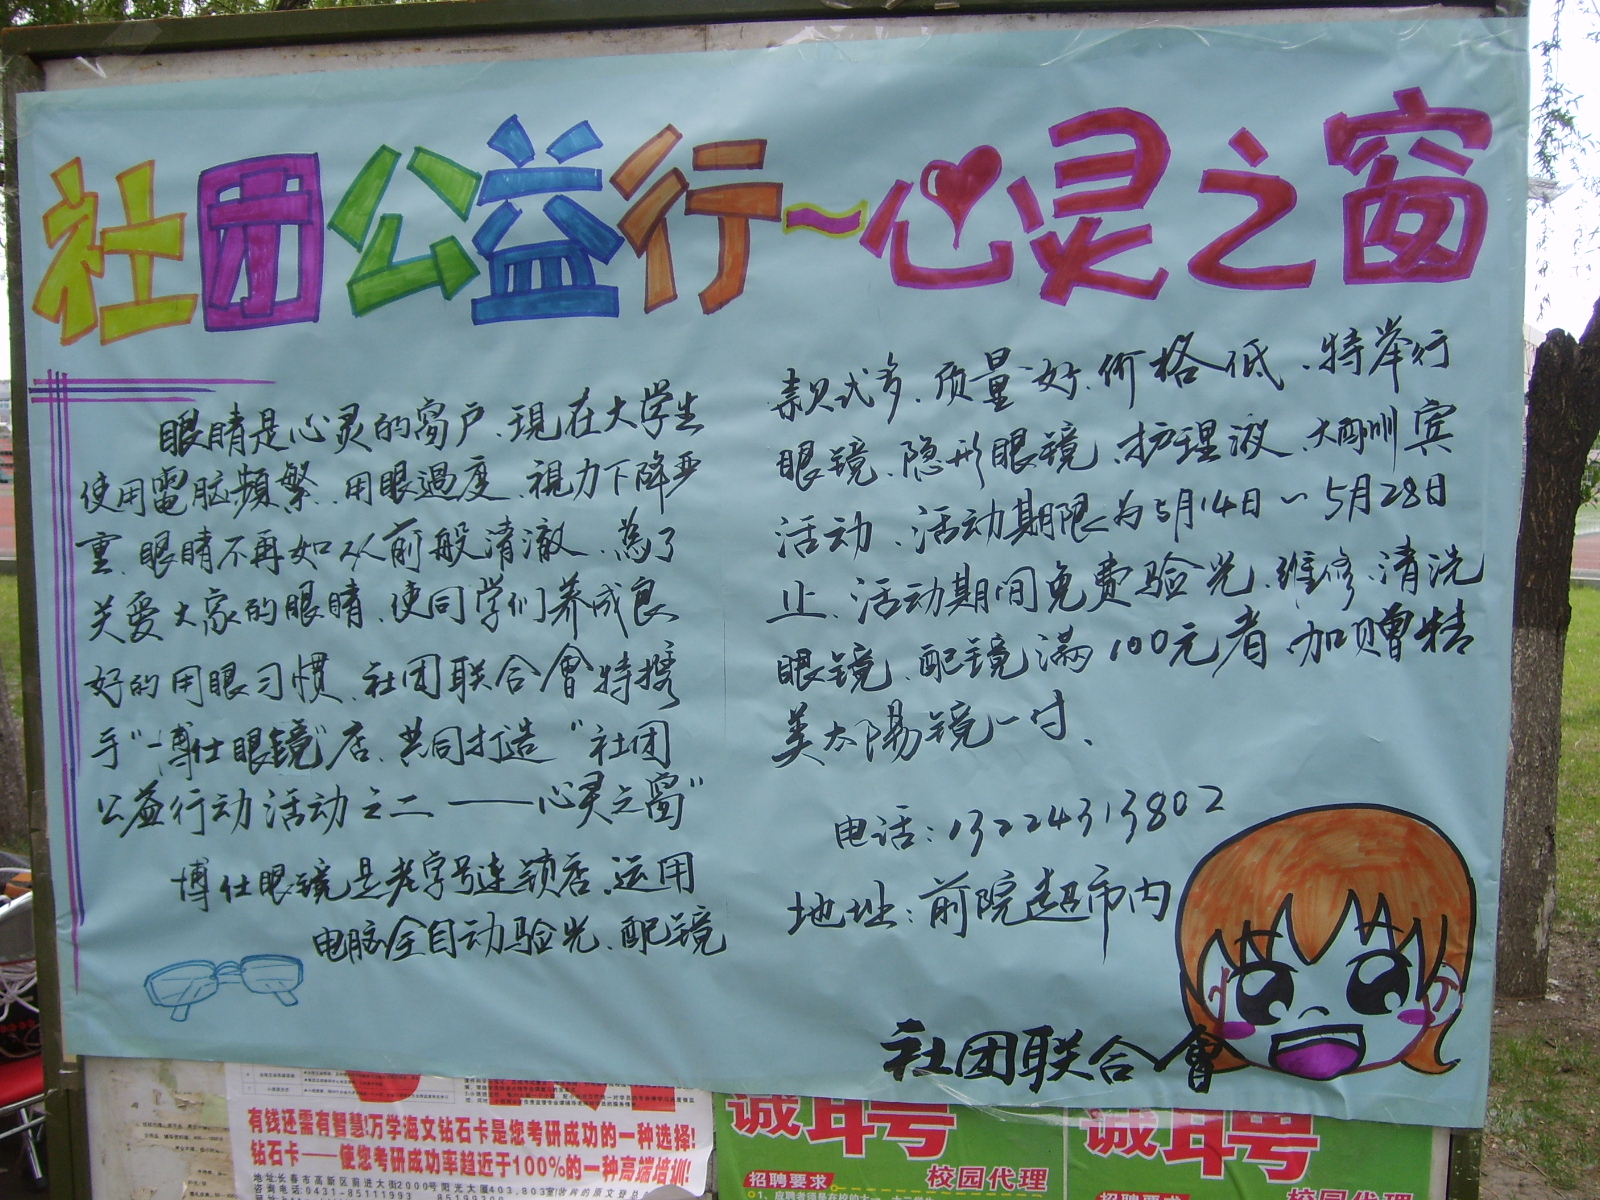 社团公益行~心灵之窗
眼睛是心灵的窗户、現在大学生
使用電脑頻繁、用眼過度、視力下降严
重、眼睛不再如以前般清澈、為了
关爱大家的眼睛、使同学们养成良
好的用眼习惯、社团联合會特携
手"博仕眼镜"店、共同打造"社团
公益行动活动之二——心灵之窗"
博仕眼镜是老字号连锁店、运用
电脑全自动验光、配镜
款式多、质量好、价格低、特举行
眼镜、隐形眼镜、护理液、大酬宾
活动、活动期限为5月14日~5月28日
止、活动期间免费验光、维修、清洗
眼镜、配镜满100元者、加赠精
美太陽镜一付、
电话:13224313802
地址:前院超市内
社团联合會
有钱还需有智慧!万学海文钻石卡是您考研成功的一种选择!
钻石卡——使您考研成功率趋近于100%的一种高端培训!
地址:长春市高新区前进大街2000号阳光大厦403,803室
咨询电话:0431-85111993
诚聘
招聘要求
校园代理
诚聘
招聘要求
校园代理